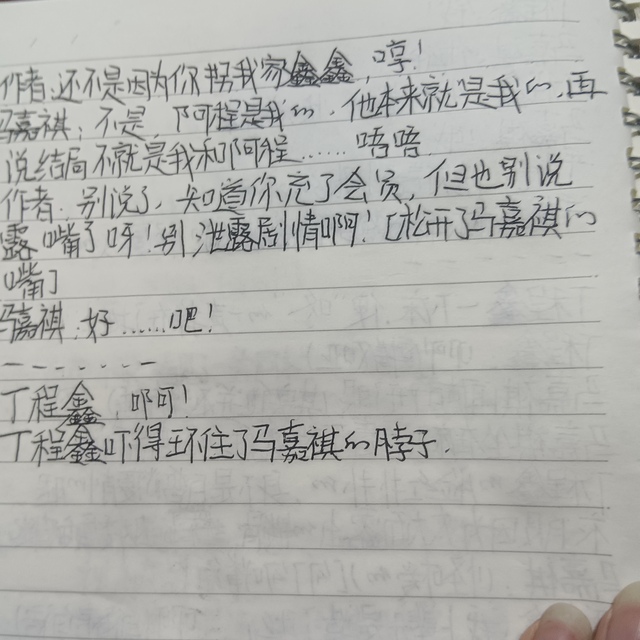 作者:还不是因为你拐我家鑫鑫,哼!
马嘉祺:不是,阿程是我的,他本来就是我的,再
说结局不就是我和阿程……唔唔
作者:别说了,知道你充了会员,但也别说
露嘴了呀!别泄露剧情啊![松开了马嘉祺的
嘴]
马嘉祺:好……吧!
-------
丁程鑫:啊!
丁程鑫吓得环住了马嘉祺的脖子.